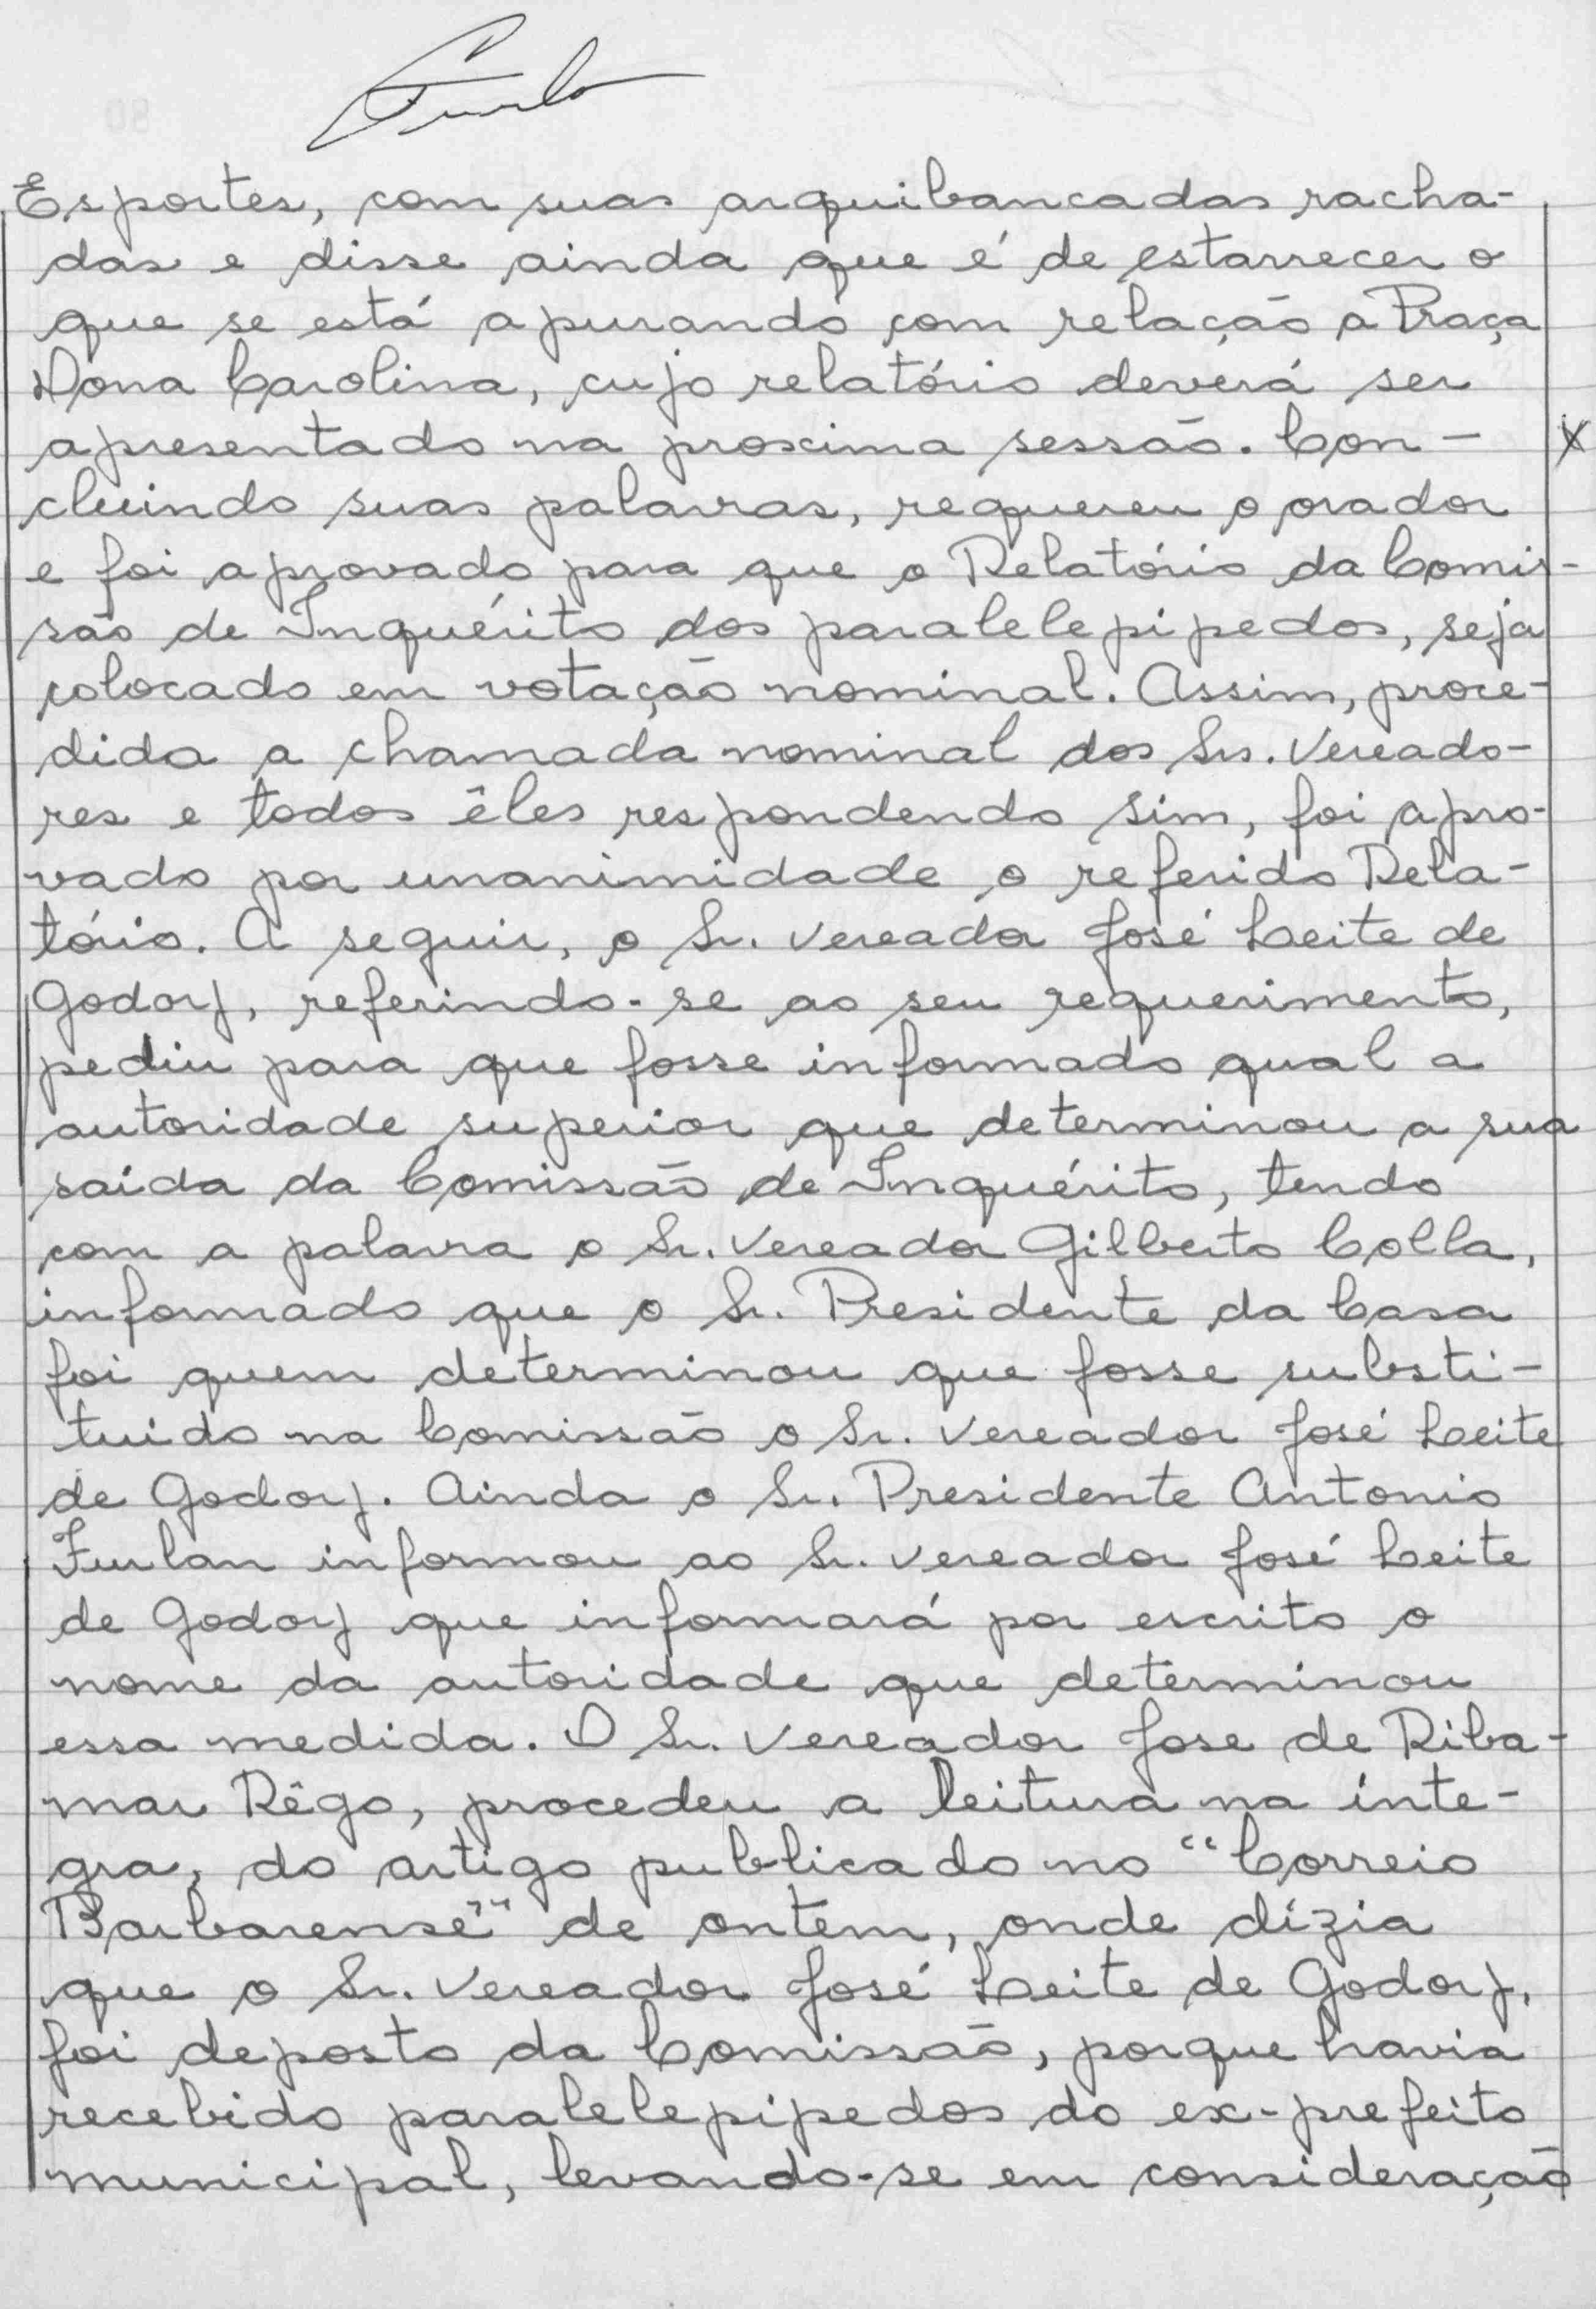 Furlan
Esportes, com suas arquibancadas racha-
das e disse ainda que é de estarrecer o
que se está apurando com relação a Praça
Dona Carolina, cujo relatório deverá ser
apresentado na proxima sessão. Con-
cluindo suas palavras, requereu o orador
e foi aprovado para que o Relatório da Comis-
são de Inquérito dos paralelepipedos, seja
colocado em votação nominal. Assim, proce-
dida a chamada nominal dos Srs. Vereado-
res e todos êles respondendo sim, foi apro-
vado por unanimidade o referido Rela-
tório. A seguir, o Sr. Vereador José Leite de
Godoy, referindo-se ao seu requerimento,
pediu para que fosse informado qual a
autoridade superior que determinou a sua
saída da Comissão de Inquérito, tendo
com a palavra o Sr. Vereador Gilberto Colla,
informado que o Sr. Presidente da Casa
foi quem determinou que fosse substi-
tuido na Comissão o Sr. Vereador José Leite
de Godoy. Ainda o Sr. Presidente Antonio
Furlan informou ao Sr. Vereador José Leite
de Godoy que informará por escrito o
nome da autoridade que determinou
essa medida. O Sr. Vereador Jose de Riba-
mar Rêgo, procedeu a leitura na ínte-
gra, do artigo publicado no "Correio
Barbarense" de ontem, onde dízia
que o Sr. Vereador José Leite de Godoy,
foi deposto da Comissão, porque havia
recebido paralelepipedos do ex-prefeito
municipal, levando-se em consideração